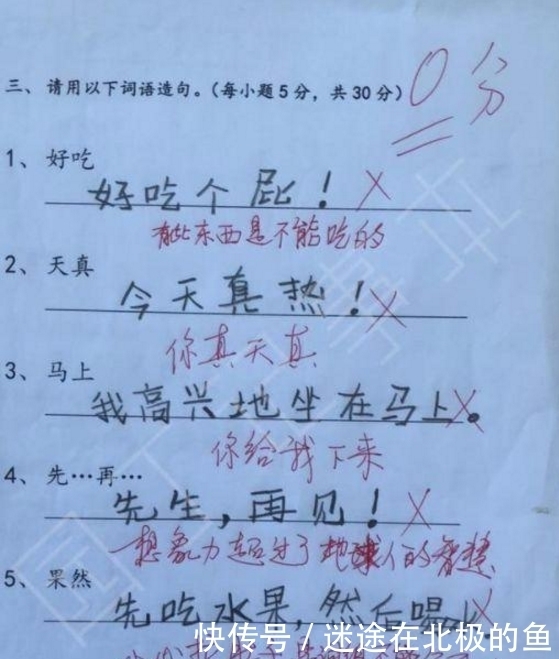 三、请用以下词语造句。(每小题5分，共30分)
0分
1、好吃
好吃个屁！
有些东西是不能吃的
2、天真
今天真热！
你真天真
3、马上
我高兴地坐在马上。
你给我下来
4、先…再…
先生，再见！
想象力超过了地球人的智慧
5、果然
先吃水果，然后喝
快传号/迷途在北极的鱼